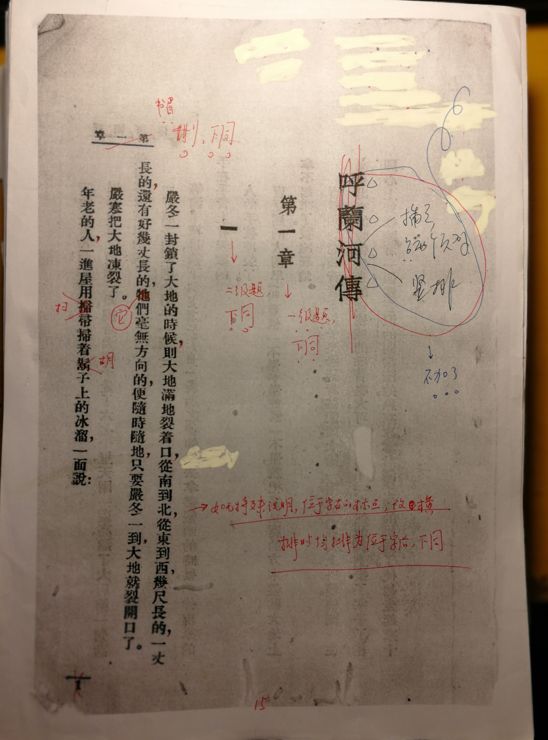 呼蘭河傳
第一章
一
嚴冬一封鎖了大地的時候，則大地滿地裂着口。從南到北，從東到西，幾尺長的，一丈
長的，還有好幾丈長的，牠們毫無方向的，便隨時隨地，只要嚴冬一到，大地就裂開口了。
嚴寒把大地凍裂了。
年老的人，一進屋用掃帚掃着鬍子上的冰溜，一面說：
第一章
1
书眉
删，下同
竖排
不加了
一级题，
下同
二级题，
下同
它
扫
胡
排时均排为位于字右，下同
15